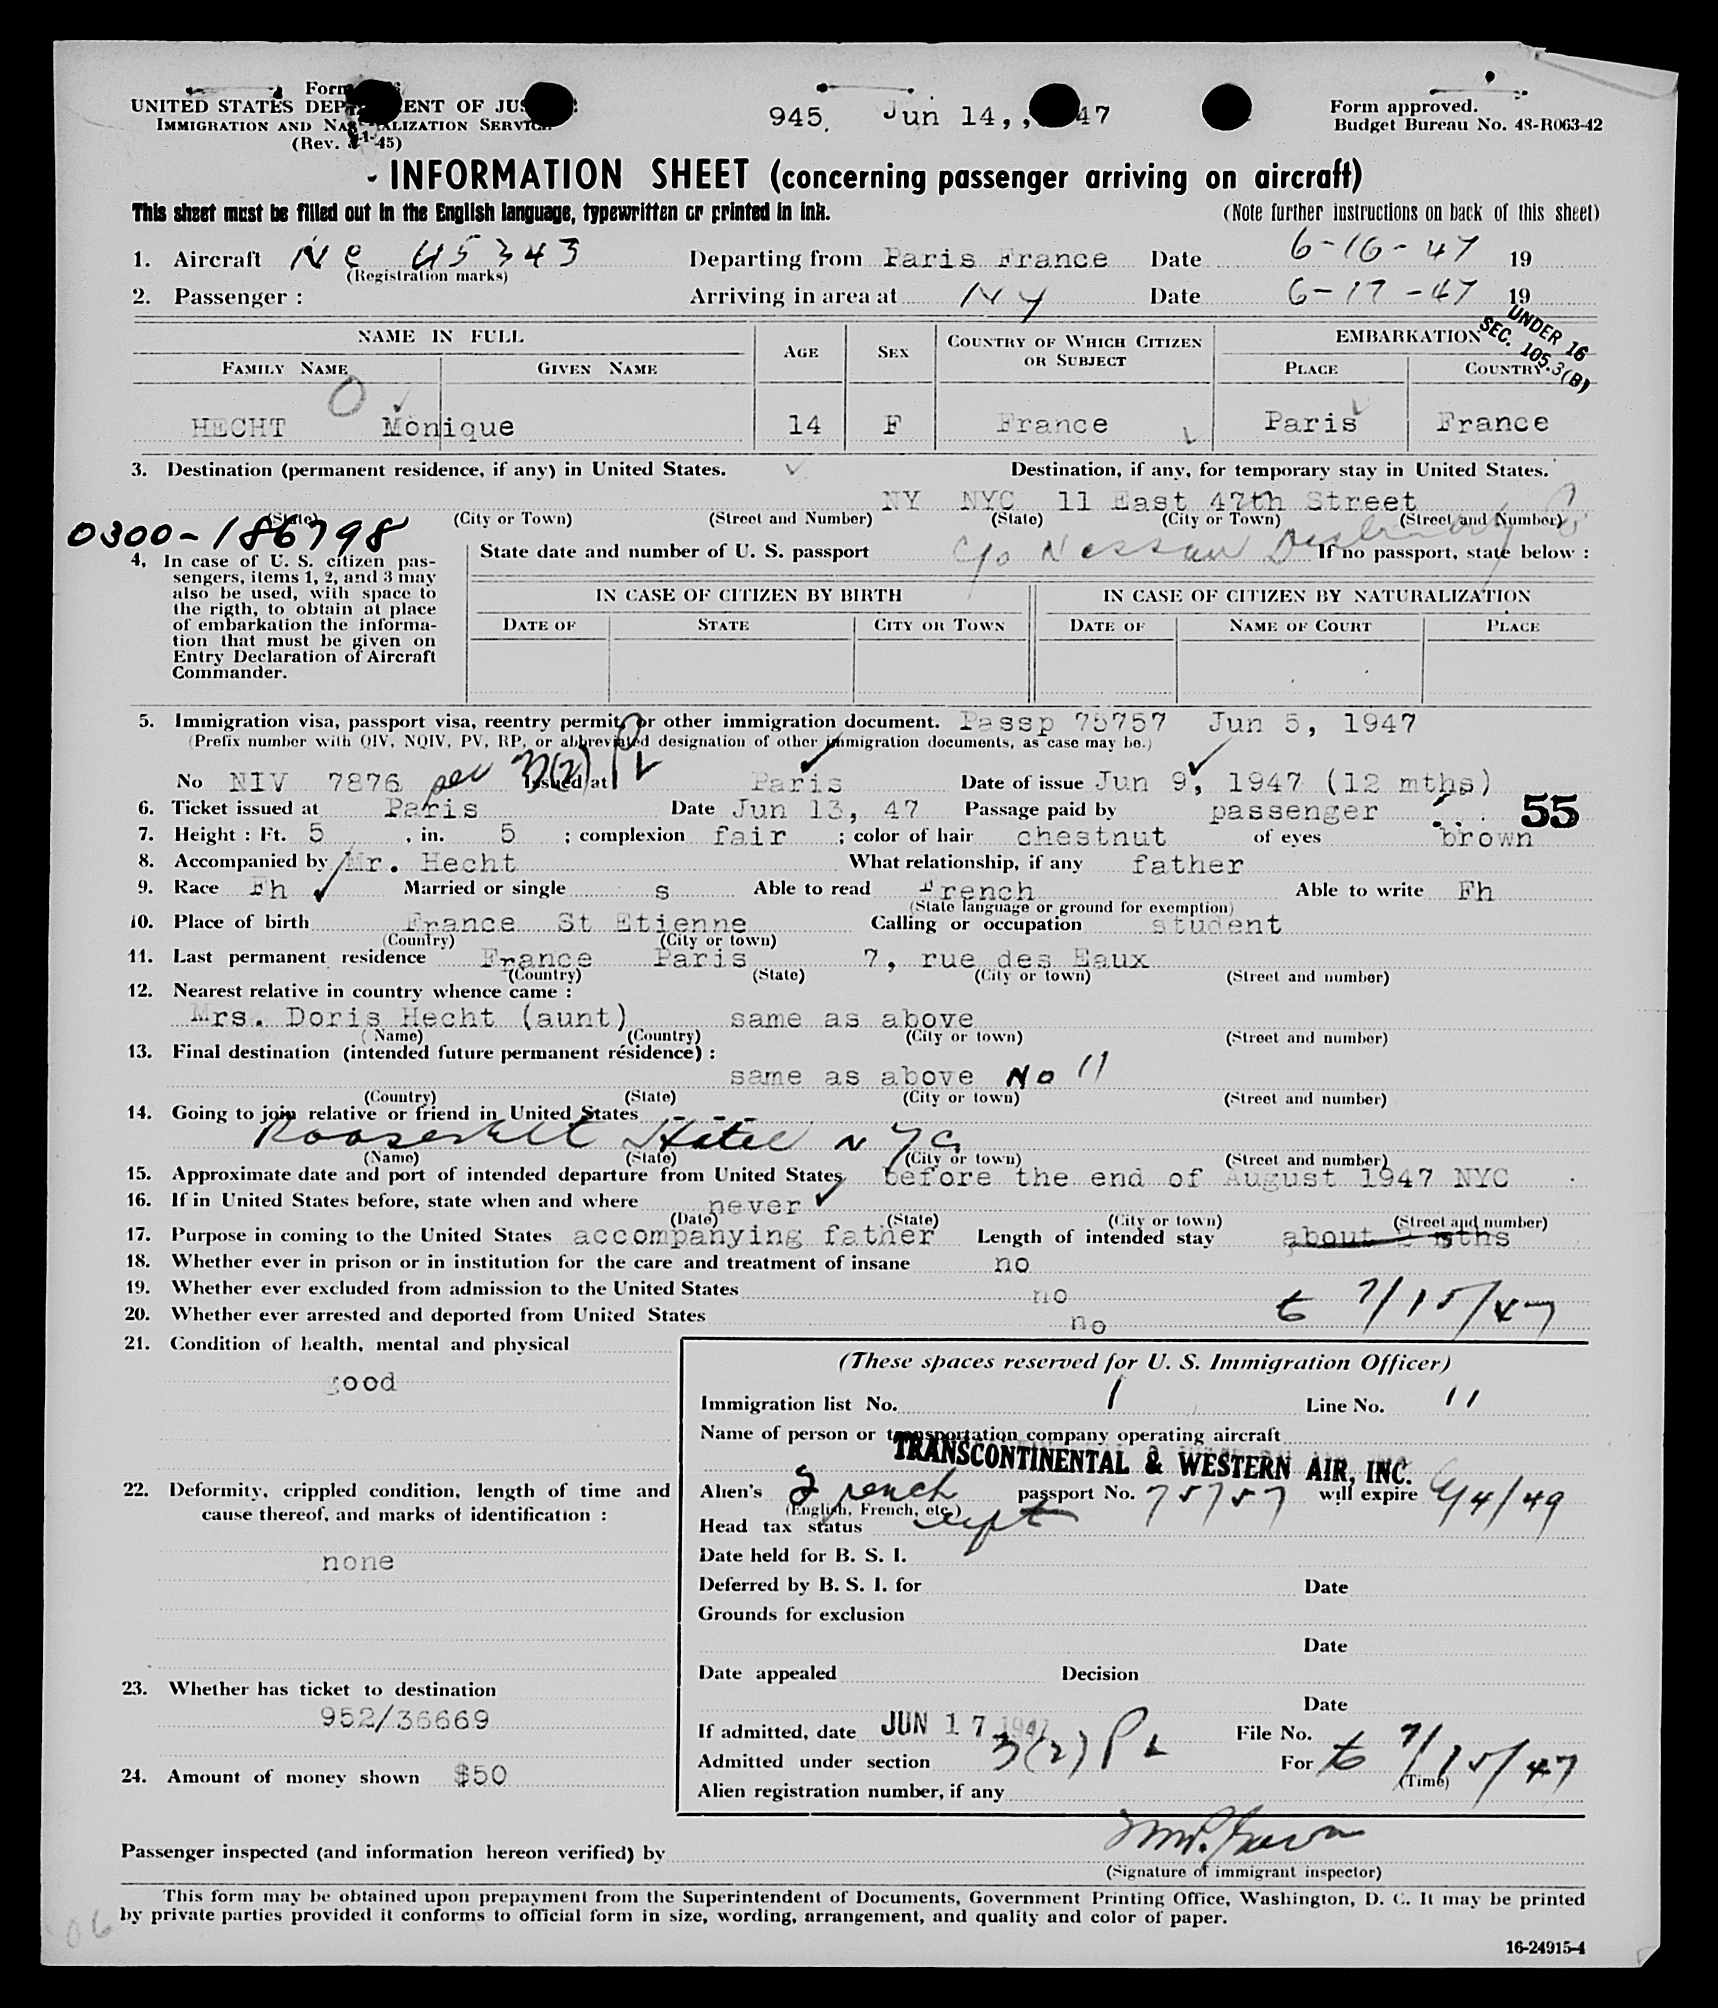 Form
UNITED STATES DEP ENT OF JUS
IMMIGRATION AND NA ALIZATION SERVICE
(Rev. -1-45)
945. Jun 14,, 47
Form approved.
Budget Bureau No. 48-R063-42
INFORMATION SHEET (concerning passenger arriving on aircraft)
This sheet must be filled out in the English language, typewritten or printed in ink.
(Note further instructions on back of this sheet)
1. Aircraft NC 45343 Departing from Paris France Date 6-16-47 19
(Registration marks)
2. Passenger : Arriving in area at NY Date 6-17-47 19
UNDER 16
SEC. 105.3(B)
NAME IN FULL
FAMILY NAME GIVEN NAME
AGE SEX COUNTRY OF WHICH CITIZEN OR SUBJECT
EMBARKATION
PLACE COUNTRY
HECHT Monique 14 F France Paris France
3. Destination (permanent residence, if any) in United States. Destination, if any, for temporary stay in United States.
NY NYC 11 East 47th Street
(State) (City or Town) (Street and Number) (State) (City or Town) (Street and Number)
0300-186798
c/o Nessau
4. In case of U. S. citizen pas-
sengers, items 1, 2, and 3 may
also be used, with space to
the rigth, to obtain at place
of embarkation the informa-
tion that must be given on
Entry Declaration of Aircraft
Commander.
State date and number of U. S. passport If no passport, state below :
IN CASE OF CITIZEN BY BIRTH IN CASE OF CITIZEN BY NATURALIZATION
DATE OF STATE CITY OR TOWN DATE OF NAME OF COURT PLACE
5. Immigration visa, passport visa, reentry permit, or other immigration document. Passp 75757 Jun 5, 1947
(Prefix number with QIV, NQIV, PV, RP, or abbreviated designation of other immigration documents, as case may be.)
No NIV 7876 sec 3(2) PL Issued at Paris Date of issue Jun 9, 1947 (12 mths)
6. Ticket issued at Paris Date Jun 13, 47 Passage paid by passenger 55
7. Height : Ft. 5 , in. 5 ; complexion fair ; color of hair chestnut of eyes brown
8. Accompanied by Mr. Hecht What relationship, if any father
9. Race Fh Married or single s Able to read French Able to write Fh
(State language or ground for exemption)
10. Place of birth France St Etienne Calling or occupation student
(Country) (City or town)
11. Last permanent residence France Paris 7, rue des Eaux
(Country) (State) (City or town) (Street and number)
12. Nearest relative in country whence came :
Mrs. Doris Hecht (aunt) same as above
(Name) (Country) (City or town) (Street and number)
13. Final destination (intended future permanent résidence) :
same as above No 11
(Country) (State) (City or town) (Street and number)
14. Going to join relative or friend in United States - - - -
Roosevelt Hotel NYC
(Name) (State) (City or town) (Street and number)
15. Approximate date and port of intended departure from United States before the end of August 1947 NYC
16. If in United States before, state when and where never
(Date) (State) (City or town) (Street and number)
17. Purpose in coming to the United States accompanying father Length of intended stay about 2 mths
18. Whether ever in prison or in institution for the care and treatment of insane no
19. Whether ever excluded from admission to the United States no
to 7/15/47
20. Whether ever arrested and deported from United States no
21. Condition of health, mental and physical
good
22. Deformity, crippled condition, length of time and
cause thereof, and marks of identification :
none
23. Whether has ticket to destination
952/36669
24. Amount of money shown $50
(These spaces reserved for U. S. Immigration Officer)
Immigration list No. 1 Line No. 11
Name of person or transportation company operating aircraft
TRANSCONTINENTAL & WESTERN AIR, INC.
Alien's French passport No. 75757 will expire 6/4/49
(English, French, etc.)
Head tax status expt
Date held for B. S. I.
Deferred by B. S. I. for Date
Grounds for exclusion
Date
Date appealed Decision
Date
If admitted, date JUN 17 1947 File No.
Admitted under section 3(2) PL For to 7/15/47
(Time)
Alien registration number, if any
Passenger inspected (and information hereon verified) by
(Signature of immigrant inspector)
This form may be obtained upon prepayment from the Superintendent of Documents, Government Printing Office, Washington, D. C. It may be printed
by private parties provided it conforms to official form in size, wording, arrangement, and quality and color of paper.
06
16-24915-4